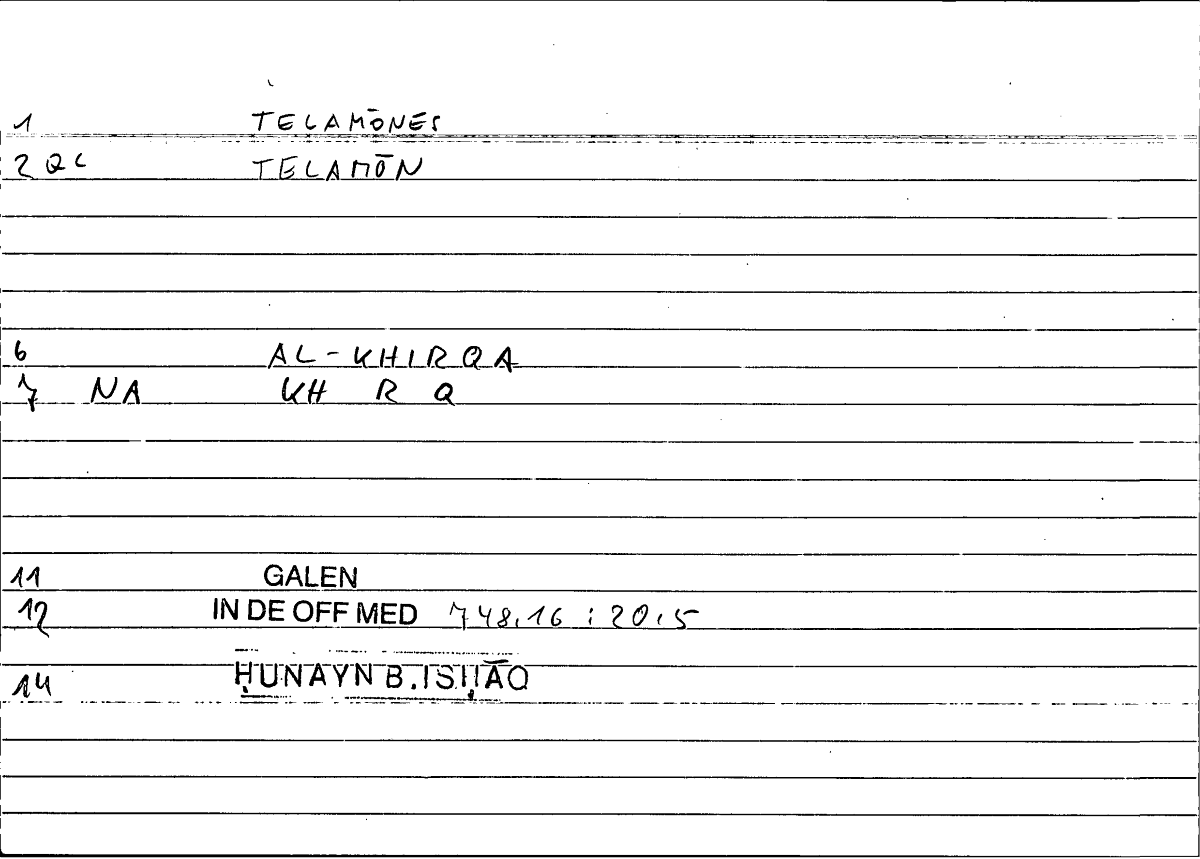 1 TELAMŌNES
2 QL TELAMŌN
6 AL-KHIRQA
7 NA KH R Q
11 GALEN
12 IN DE OFF MED 748,16 : 20,5
14 ḤUNAYN B. ISḤĀQ